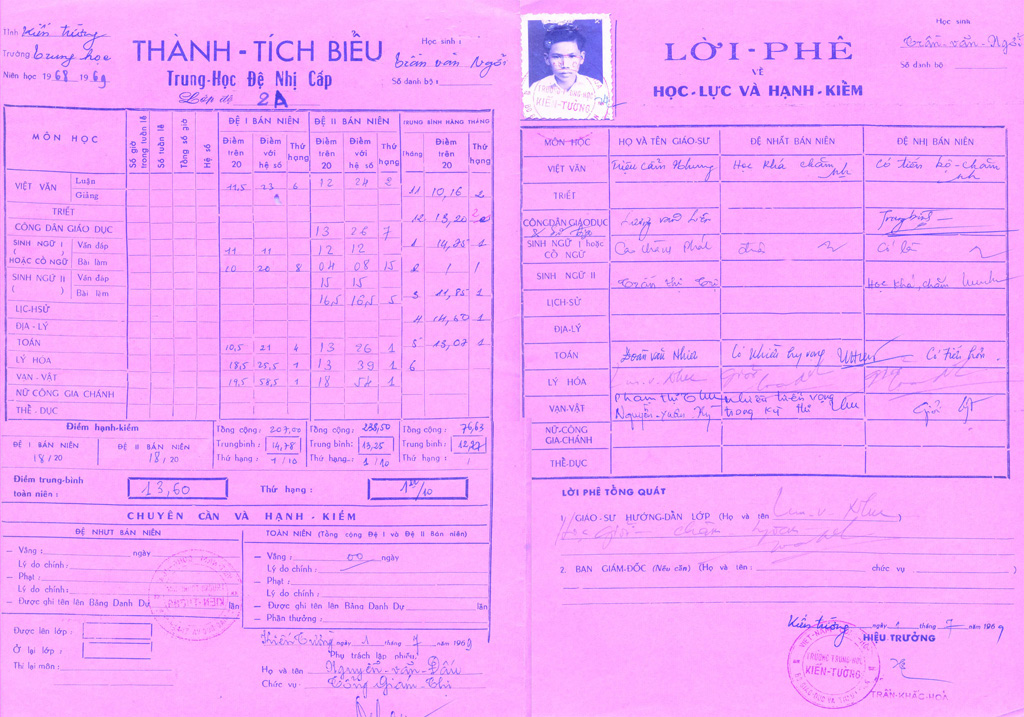 Tỉnh Kiến Tường
Trường Trung học
Niên học 1968 1969
THÀNH - TÍCH BIỂU
Trung-Học Đệ Nhị Cấp
Lớp đệ 2A
Học sinh :
Trần văn Ngỗi
Số danh bộ :
MÔN HỌC
Số giờ trong tuần lễ
Số tuần lễ
Tổng số giờ
Hệ số
ĐỆ I BÁN NIÊN
ĐỆ II BÁN NIÊN
TRUNG BÌNH HÀNG THÁNG
Điểm trên 20
Điểm với hệ số
Thứ hạng
Điểm trên 20
Điểm với hệ số
Thứ hạng
Tháng
Điểm trên 20
Thứ hạng
VIỆT VĂN
Luận
Giảng
11,5 23 6 12 24 2
11 10,16 2
TRIẾT
12 13,20
CÔNG DÂN GIÁO DỤC
13 26 7
SINH NGỮ I ( ) HOẶC CỔ NGỮ
Vấn đáp
11 11 12 12
1 14,25 1
Bài làm
10 20 8 04 08 15
2 / /
SINH NGỮ II ( )
Vấn đáp
15 15
Bài làm
16,5 16,5 5
3 11,85 1
LỊCH-HSỬ
4 14,60 1
ĐỊA - LÝ
TOÁN
10,5 21 4 13 26 1
5 13,07 1
LÝ HÓA
18,5 25,5 1 13 39 1
6
VẠN - VẬT
19,5 58,5 1 18 54 1
NỮ CÔNG GIA CHÁNH
THỂ - DỤC
Điểm hạnh-kiểm
ĐỆ I BÁN NIÊN
18/20
ĐỆ II BÁN NIÊN
18/20
Tổng cộng : 207,00
Trungbình : 14,78
Thứ hạng : 1/10
Tổng cộng : 238,50
Trung bình : 13,25
Thứ hạng : 1/10
Tổng cộng : 76,63
Trung bình : 12,77
Thứ hạng : /
Điểm trung-bình toàn niên : 13,60
Thứ hạng : 1/10
CHUYÊN CẦN VÀ HẠNH - KIỂM
ĐỆ NHỨT BÁN NIÊN
TOÀN NIÊN (Tổng cộng Đệ I và Đệ II Bán niên)
— Vắng : ngày
Lý do chính :
— Phạt :
Lý do chính :
— Được ghi tên lên Bảng Danh Dự lần
— Vắng : 00 ngày
Lý do chính :
— Phạt :
Lý do chính :
— Được ghi tên lên Bảng Danh Dự lần
— Phần thưởng :
KIẾN-TƯỜNG
Được lên lớp :
Ở lại lớp :
Thi lại môn :
Kiến Tường ngày 1 tháng 7 năm 1969
Phụ trách lập phiếu,
Họ và tên Nguyễn-văn-Đấu
Chức vụ Tổng Giám Thị
TRƯỜNG TRUNG-HỌC
KIẾN-TƯỜNG
LỜI - PHÊ
VỀ
HỌC - LỰC VÀ HẠNH - KIỂM
Học sinh
Trần-văn-Ngỗi
Số danh bộ
MÔN HỌC
HỌ VÀ TÊN GIÁO-SƯ
ĐỆ NHẤT BÁN NIÊN
ĐỆ NHỊ BÁN NIÊN
VIỆT VĂN
Triệu Cẩm Nhung
Học khá chăm
Có tiến bộ - chăm
TRIẾT
CÔNG DÂN GIÁODỤC
Trung bình
SINH NGỮ I hoặc CỔ NGỮ
SINH NGỮ II
Trần thị Trí
Học khá, chăm
LỊCH-SỬ
ĐỊA-LÝ
TOÁN
Đoàn văn Nhiêu
Có nhiều hy vọng
LÝ HÓA
VẠN-VẬT
Phạm thị Thu
Nguyễn-Xuân Kỳ
nhiều triển vọng trong kỳ thi
Giỏi
NỮ-CÔNG GIA-CHÁNH
THỂ-DỤC
LỜI PHÊ TỔNG QUÁT
1/ GIÁO-SƯ HƯỚNG-DẪN LỚP (Họ và tên )
Học giỏi chăm ngoan
2. BAN GIÁM-ĐỐC (Nếu cần) (Họ và tên : chức vụ )
Kiến Tường ngày 1 tháng 7 năm 1969
HIỆU TRƯỞNG
TRƯỜNG TRUNG-HỌC
KIẾN-TƯỜNG
TRẦN-KHẮC-HOÀ